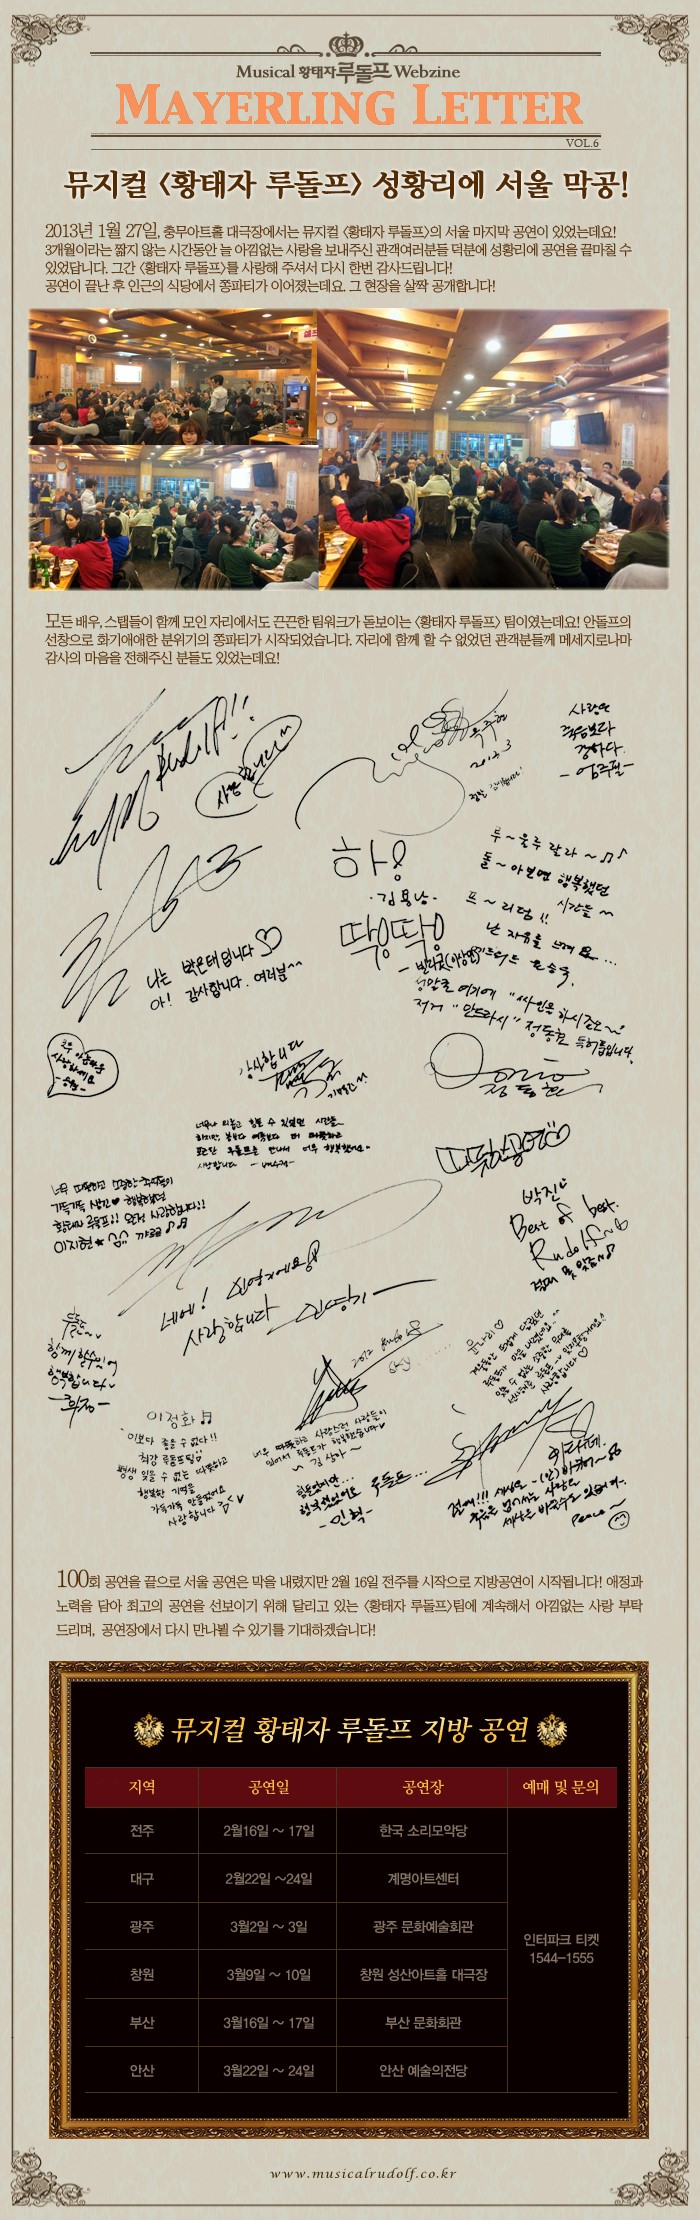 Musical 황태자루돌프 Webzine
MAYERLING LETTER
VOL.6
뮤지컬 <황태자 루돌프> 성황리에 서울 막공!
2013년 1월 27일, 충무아트홀 대극장에서는 뮤지컬 <황태자 루돌프>의 서울 마지막 공연이 있었는데요!
3개월이라는 짧지 않는 시간동안 늘 아낌없는 사랑을 보내주신 관객여러분들 덕분에 성황리에 공연을 끝마칠 수
있었답니다. 그간 <황태자 루돌프>를 사랑해 주셔서 다시 한번 감사드립니다!
공연이 끝난 후 인근의 식당에서 쫑파티가 이어졌는데요. 그 현장을 살짝 공개합니다!
모든 배우, 스탭들이 함께 모인 자리에서도 끈끈한 팀워크가 돋보이는 <황태자 루돌프> 팀이였는데요! 안돌프의
선창으로 화기애애한 분위기의 쫑파티가 시작되었습니다. 자리에 함께 할 수 없었던 관객분들께 메세지로나마
감사의 마음을 전해주신 분들도 있었는데요!
Rudolf!!
옥주현
2013.3
사랑은
죽음보다
강하다.
-엄주필-
하앙
-김용남-
딱웅딱웅
루~울루 랄라~♫♪
돌~아보면 행복했던
시간들~
프~리덤!!
난 자유를 느껴요...
나는 박은태입니다♡
아! 감사합니다. 여러분^^
정말로 여기에 "싸인을 하시죠오~"
저거 "만드라시" 정동효 특허품입니다.
감사합니다
따뜻한 공연♡
너무 따뜻하고 따뜻한 추억들이
가득가득 생긴♥ 행복했던
황태자 루돌프!! 완전 사랑합니다!!
이지현★
박진♡
Best of best.
Rudolf~
절대 못 잊죠~♪
네에! 신영기에요
사랑합니다 신영기
루돌프~
함께 할 수 있어
행복합니다♥
이정화♬
이보다 좋을 수 없다!!
최강 루돌프팀
평생 잊을 수 없는 따뜻하고
행복한 기억을
가득가득 만들었어요
사랑합니다
너무 따뜻하고 사랑스런 사람들이
있어서 루돌프가 행복했습니다♥
~김상아~
힘들었지만...
행복했었어요 루돌프...
-민혁-
위타펜.
절대!!! 세상은 -(안)바뀌어~
죽음을 넘어서는 사랑은
세상을 바꿀수도 있어여.
Peace~
100회 공연을 끝으로 서울 공연은 막을 내렸지만 2월 16일 전주를 시작으로 지방공연이 시작됩니다! 애정과
노력을 담아 최고의 공연을 선보이기 위해 달리고 있는 <황태자 루돌프>팀에 계속해서 아낌없는 사랑 부탁
드리며, 공연장에서 다시 만나뵐 수 있기를 기대하겠습니다!
뮤지컬 황태자 루돌프 지방 공연
지역 공연일 공연장 예매 및 문의
전주 2월16일 ~ 17일 한국 소리모악당
대구 2월22일 ~24일 계명아트센터
광주 3월2일 ~ 3일 광주 문화예술회관
인터파크 티켓
1544-1555
창원 3월9일 ~ 10일 창원 성산아트홀 대극장
부산 3월16일 ~ 17일 부산 문화회관
안산 3월22일 ~ 24일 안산 예술의전당
www.musicalrudolf.co.kr